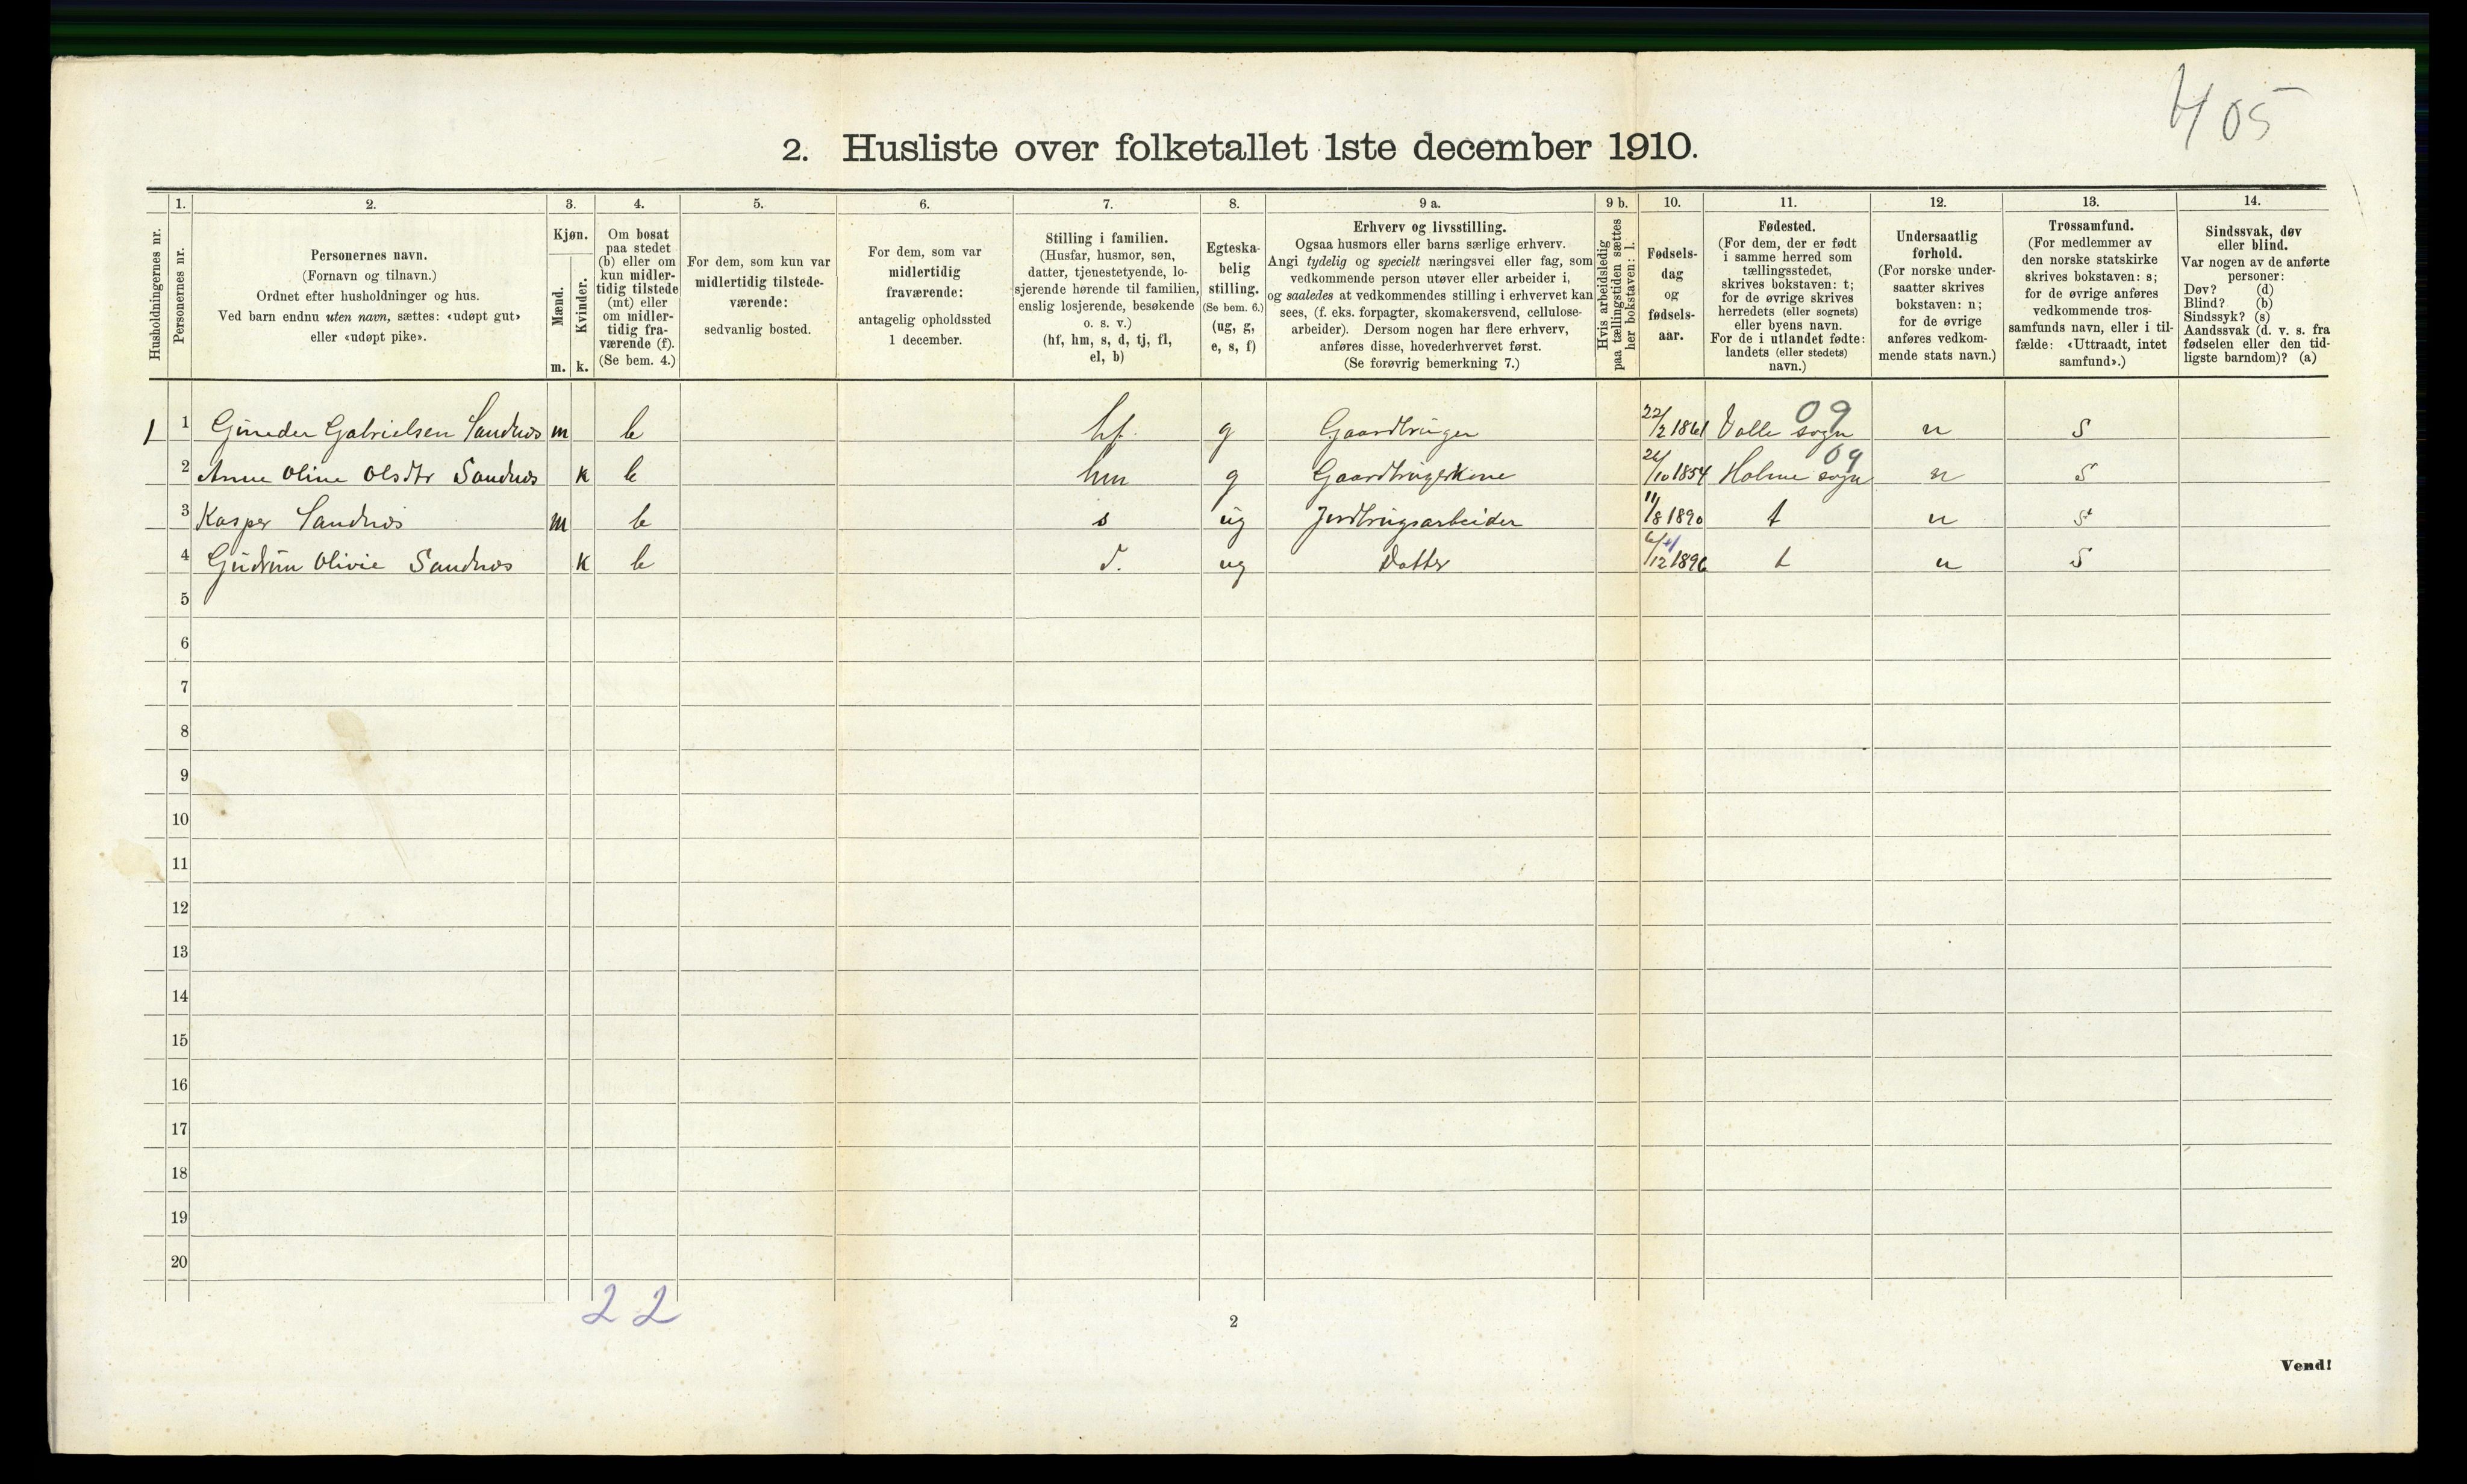 405
2. Husliste over folketallet 1ste december 1910.
Husholdningernes nr.
1.
Personernes nr.
2.
Personernes navn.
(Fornavn og tilnavn.)
Ordnet efter husholdninger og hus.
Ved barn endnu uten navn, sættes: «udøpt gut»
eller «udøpt pike».
3.
Kjøn.
Mænd.
Kvinder.
m. k.
4.
Om bosat
paa stedet
(b) eller om
kun midler-
tidig tilstede
(mt) eller
om midler-
tidig fra-
værende (f).
(Se bem. 4.)
5.
For dem, som kun var
midlertidig tilstede-
værende:
sedvanlig bosted.
6.
For dem, som var
midlertidig
fraværende:
antagelig opholdssted
1 december.
7.
Stilling i familien.
(Husfar, husmor, søn,
datter, tjenestetyende, lo-
sjerende hørende til familien,
enslig losjerende, besøkende
o. s. v.)
(hf, hm, s, d, tj, fl,
el, b)
8.
Egteska-
belig
stilling.
(Se bem. 6.)
(ug, g,
e, s, f)
9 a.
Erhverv og livsstilling.
Ogsaa husmors eller barns særlige erhverv.
Angi tydelig og specielt næringsvei eller fag, som
vedkommende person utøver eller arbeider i,
og saaledes at vedkommendes stilling i erhvervet kan
sees, (f. eks. forpagter, skomakersvend, cellulose-
arbeider). Dersom nogen har flere erhverv,
anføres disse, hovederhvervet først.
(Se forøvrig bemerkning 7.)
9 b.
Hvis arbeidsledig
paa tællingstiden sættes
her bokstaven: l.
10.
Fødsels-
dag
og
fødsels-
aar.
11.
Fødested.
(For dem, der er født
i samme herred som
tællingsstedet,
skrives bokstaven: t;
for de øvrige skrives
herredets (eller sognets)
eller byens navn.
For de i utlandet fødte:
landets (eller stedets)
navn.)
12.
Undersaatlig
forhold.
(For norske under-
saatter skrives
bokstaven: n;
for de øvrige
anføres vedkom-
mende stats navn.)
13.
Trossamfund.
(For medlemmer av
den norske statskirke
skrives bokstaven: s;
for de øvrige anføres
vedkommende tros-
samfunds navn, eller i til-
fælde: «Uttraadt, intet
samfund».)
14.
Sindssvak, døv
eller blind.
Var nogen av de anførte
personer:
Døv? (d)
Blind? (b)
Sindssyk? (s)
Aandssvak (d. v. s. fra
fødselen eller den tid-
ligste barndom)? (a)
09
1 1 Guneder Gabrielsen Sandnes m b hf g Gaardbruger 22/2 1861 Valle sogn n S
09
2 Anne Oline Olsdtr Sandnes k b hm g Gaardbrugerkone /10 1854 Holme sogn n S
3 Kasper Sandnes m b s ug Jordbrugsarbeider 11/8 1890 t n S
4 Gudrun Olivie Sandnes k b d. ug Datter 6/12 1896 t n S
5
6
7
8
9
10
11
12
13
14
15
16
17
18
19
20
2 2
2
Vend!